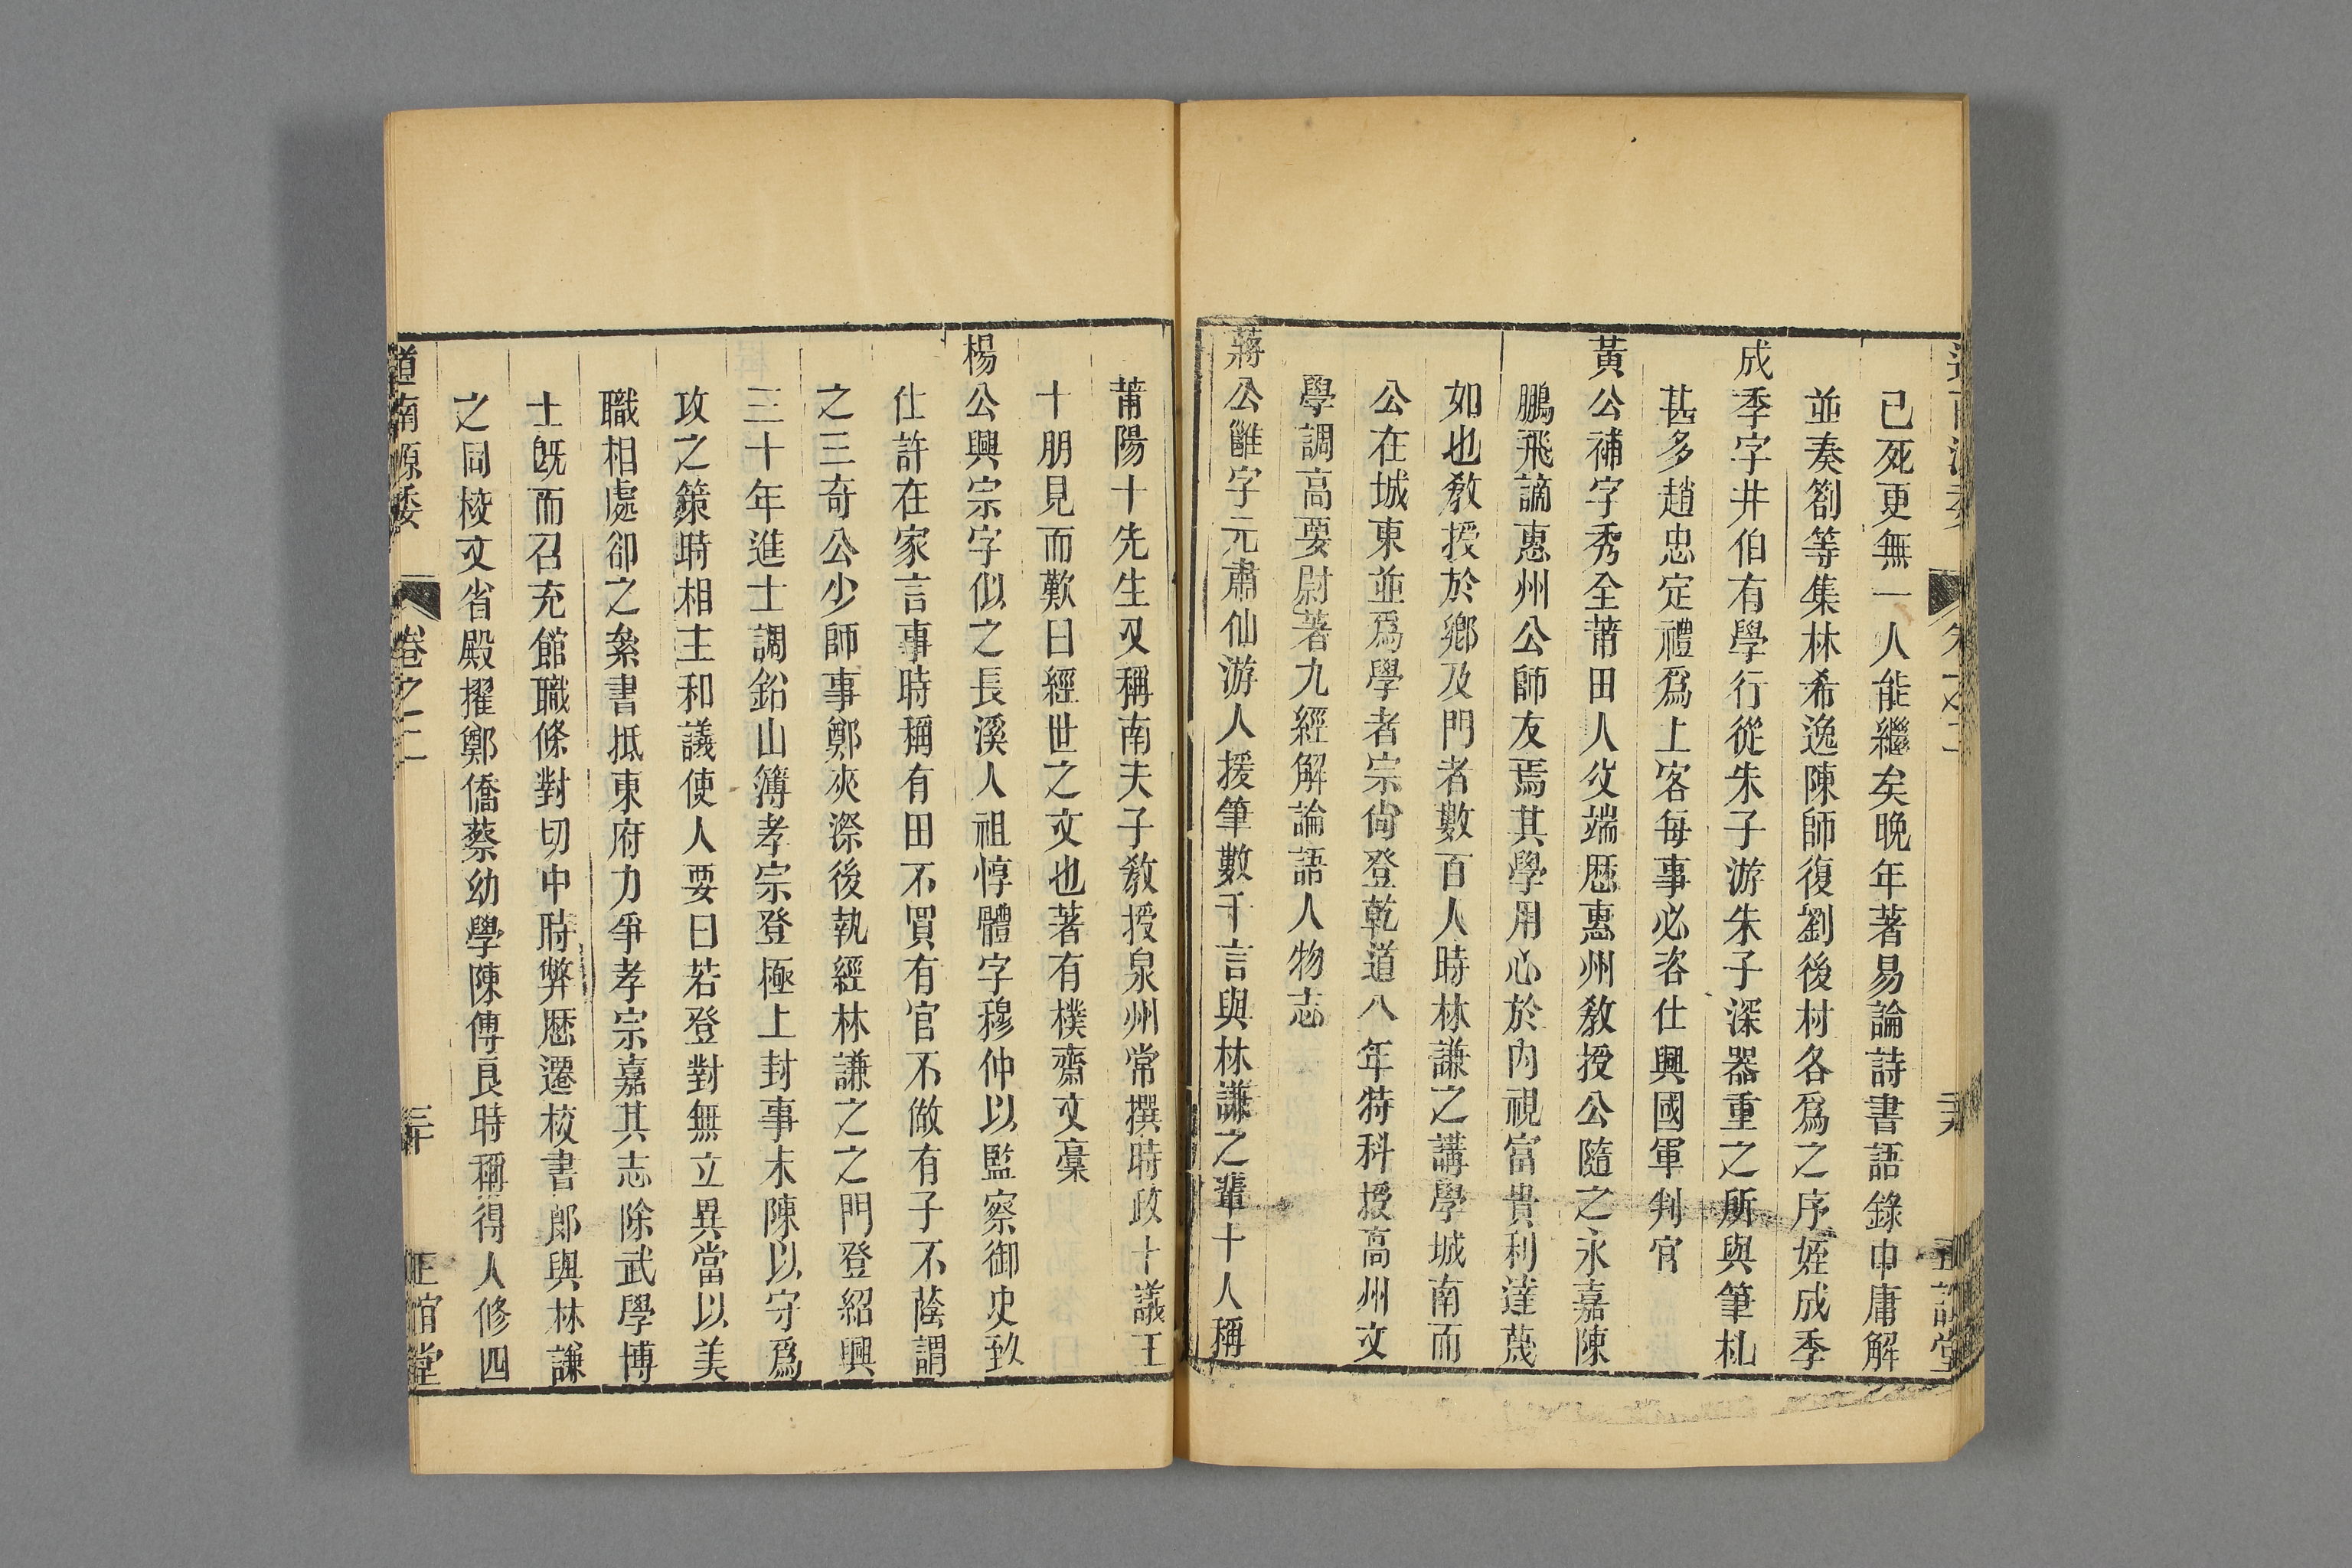 已死更無一人能繼矣晚年著易論詩書語錄中庸解
並奏劄等集林希逸陳師復劉後村各爲之序姪成季
成季字井伯有學行從朱子游朱子深器重之所與筆札
甚多趙忠定禮爲上客每事必咨仕興國軍判官
黃公補字秀全莆田人父端歷惠州敎授公隨之永嘉陳
鵬飛謫惠州公師友焉其學用心於內視富貴利達蔑
如也敎授於鄉及門者數百人時林謙之講學城南而
公在城東並爲學者宗尙登乾道八年特科授高州文
學調高要尉著九經解論語人物志
蔣公雝字元肅仙游人援筆數千言與林謙之輩十人稱
莆陽十先生又稱南夫子敎授泉州常撰時政十議王
十朋見而歎曰經世之文也著有樸齋文稾
楊公興宗字似之長溪人祖惇體字穆仲以監察御史致
仕許在家言事時稱有田不買有官不做有子不蔭謂
之三奇公少師事鄭夾漈後執經林謙之之門登紹興
三十年進士調鉛山簿孝宗登極上封事末陳以守爲
攻之策時相主和議使人要曰若登對無立異當以美
職相處卻之絫書抵東府力爭孝宗嘉其志除武學博
士旣而召充館職條對切中時弊歷遷校書郎與林謙
之同校文省殿擢鄭僑蔡幼學陳傅良時稱得人修四
道南源委 卷之二 三十 正誼堂